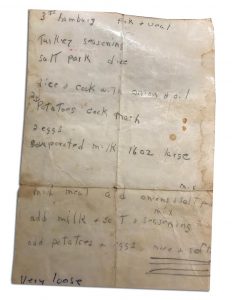 3 hamburg pork + veal
Turkey seasoning
Salt pork dice
dice + cook with onions + oil
Potatoes cook mash
2 eggs
evaporated milk 16oz large
mix meat and onions + salt p
mix
add milk + salt + seasening
add potatoes + eggs
Very loose